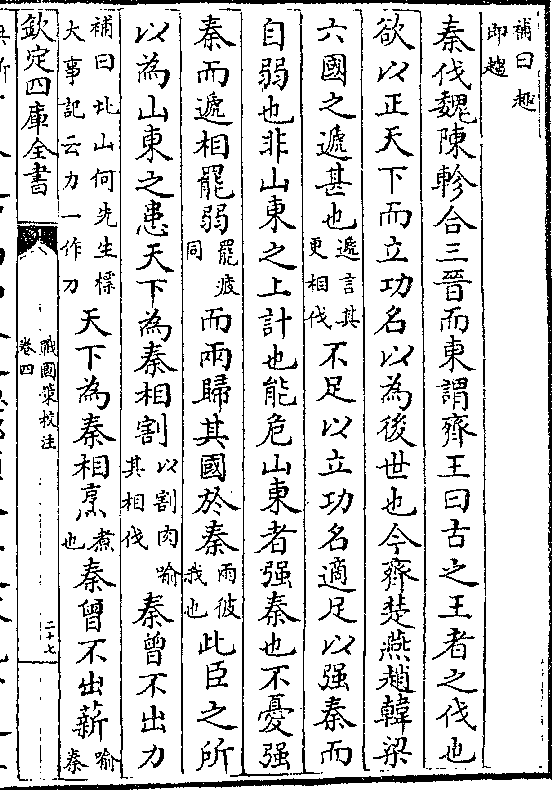 補曰趣
即趨
秦伐魏陳軫合三晉而東謂齊王曰古之王者之伐也
欲以正天下而立功名以為後世也今齊楚燕趙韓梁
六國之遞甚也遞言其更相伐不足以立功名適足以强秦而
自弱也非山東之上計也能危山東者强秦也不憂强
秦而遞相罷弱罷疲同而兩歸其國於秦兩彼我也此臣之所
以為山東之患天下為秦相割以割肉喻其相伐秦曾不出力
補曰北山何先生標大事記云力一作刀天下為秦相烹煮也秦曾不出薪喻秦
欽定四庫全書
戰國策校注
卷四
二十七